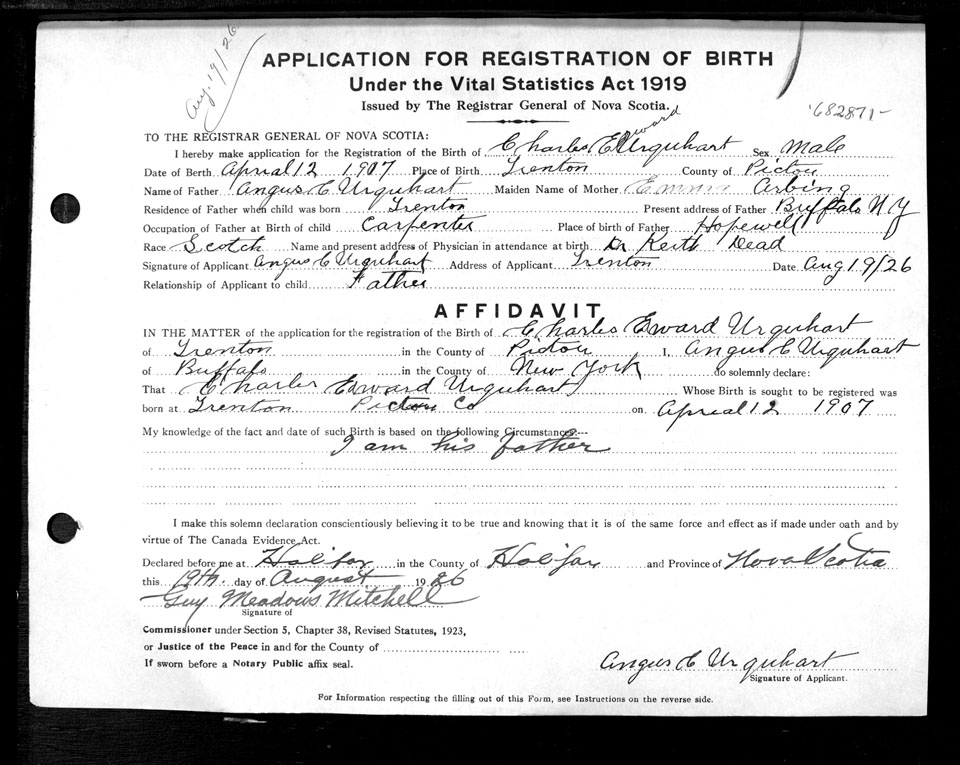 Aug. 19/26
APPLICATION FOR REGISTRATION OF BIRTH
Under the Vital Statistics Act 1919
Issued by The Registrar General of Nova Scotia.
682871-
TO THE REGISTRAR GENERAL OF NOVA SCOTIA:
I hereby make application for the Registration of the Birth of Charles Edward Urquhart Sex Male
Date of Berth Aprial 12 1907 Place of Birth Trenton County of Pictou
Name of Father Angus C Urquhart Maiden Name of Mother Emma Arbing
Residence of Father when child was born Trenton Present address of Father Buffalo N Y
Occupation of Father at Birth of child Carpenter Place of birth of Father Hopewell
Race Scotch Name and present address of Physician in attendance at birth Dr Keith Dead
Signature of Applicant Angus C Urquhart Address of Applicant Trenton Date Aug 19/26
Relationship of Applicant to child Father
AFFIDAVIT
IN THE MATTER of the application for the registration of the Birth of Charles Eward Urquhart
of Trenton in the County of Pictou I, Angus C Urquhart
of Buffalo in the County of New York do solemnly declare:
That Charles Edward Urquhart Whose Birth is sought to be registered was
born at Trenton Pictou Co on Aprial 12 1907
My knowledge of the fact and date of such Birth is based on the following Circumstances:---
I am his father
I make this solemn declaration conscientiously believing it to be true and knowing that it is of the same force and effect as if made under oath and by
virtue of The Canada Evidence Act.
Declared before me at Halifax in the County of Halifax and Province of Nova Scotia
this 19th day of August 1926
Guy Meadows Mitchell
Signature of
Commissioner under Section 5, Chapter 38, Revised Statutes, 1923,
or Justice of the Peace in and for the County of
If sworn before a Notary Public affix seal.
Angus C Urquhart
Signature of Applicant.
For Information respecting the filling out of this Form, see Instructions on the reverse side.